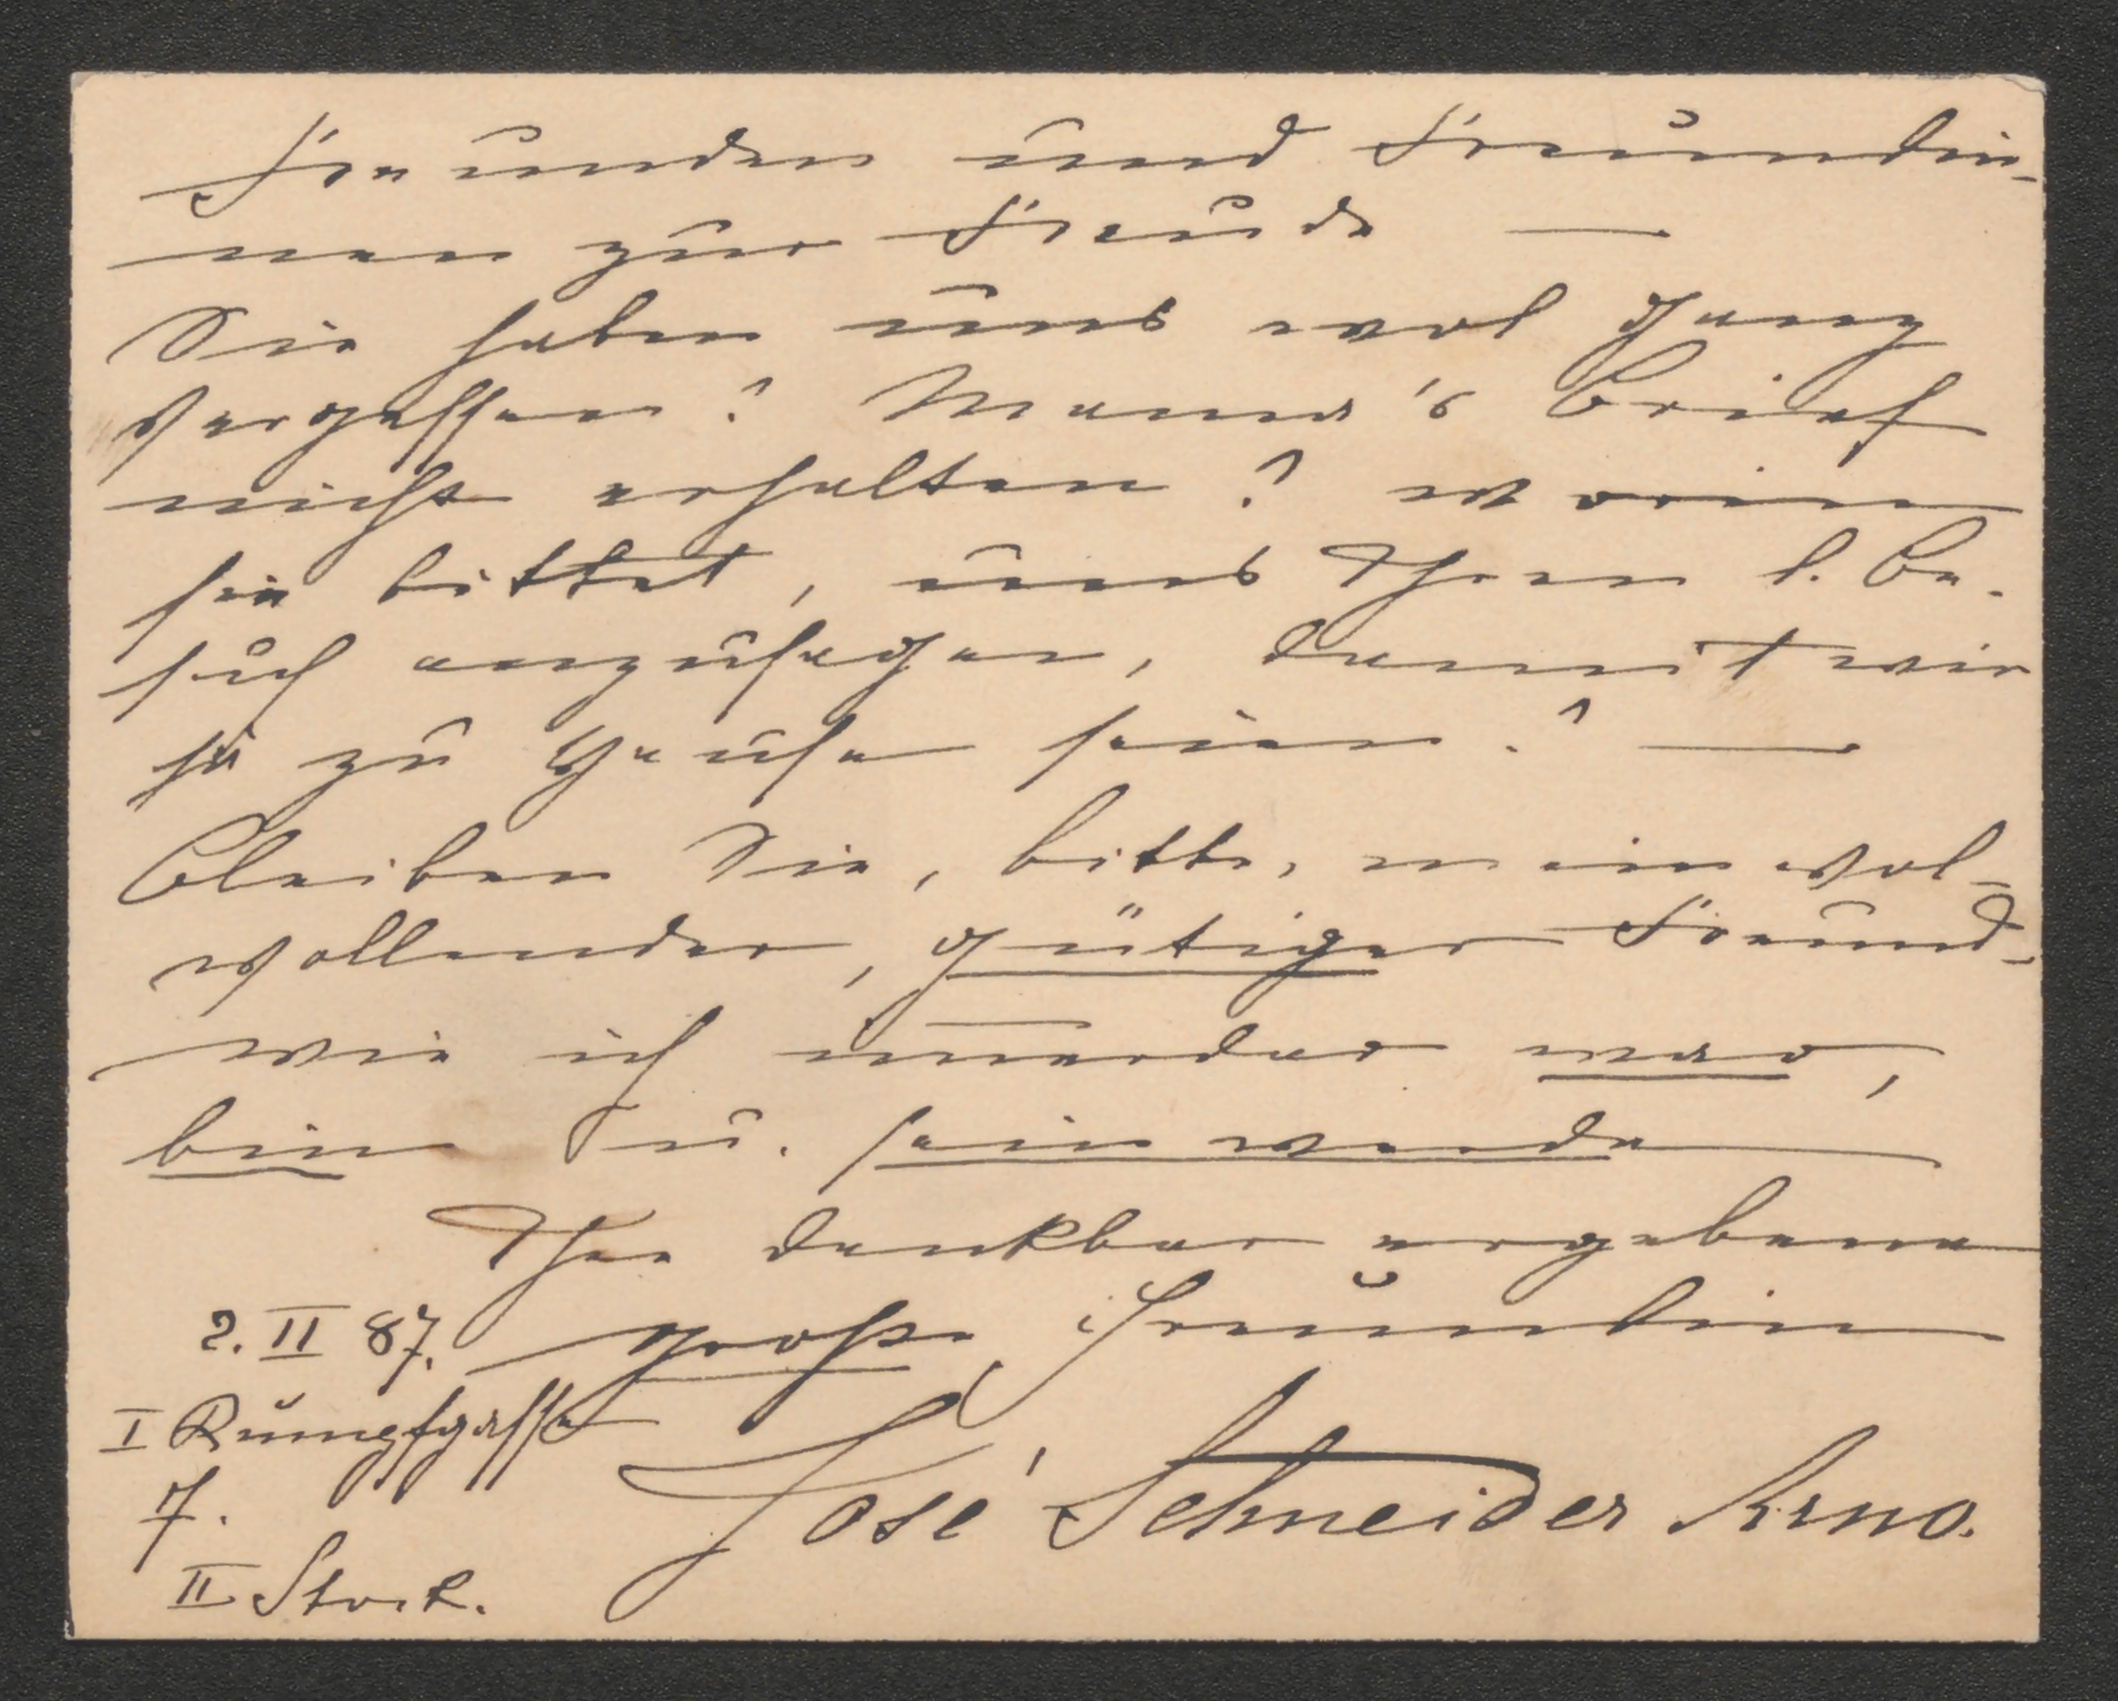 Freunden und Freundin-
nen zur Freude —
Sie haben uns wol ganz
vergessen? Mama's Brief
nicht erhalten? worin
sie bittet, uns Ihren l. Be-
such anzusagen, damit wir
ja zu Hause seien? —
Bleiben Sie, bitte, mein wol-
wollender, gütiger Freund,
wie ich im̄erdar war,
bin u. sein werde
Ihre dankbar ergebene
2. II 87. große Freundin
I Rumpfgasse
7. José Schneider Arno.
II Stock.